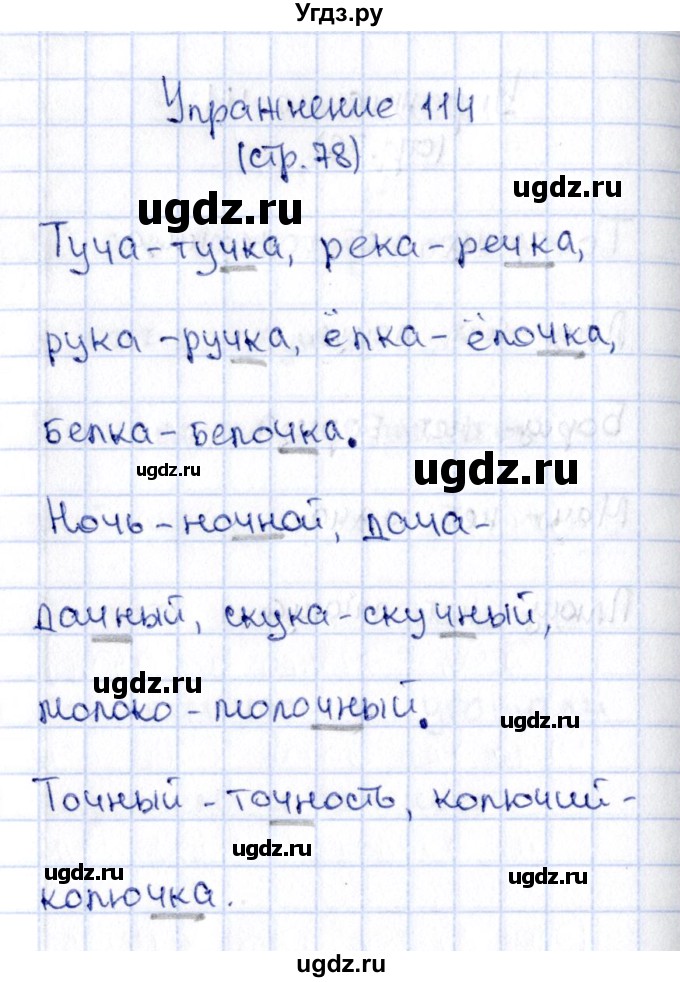 Угдз.ру
Упражнение 114
(стр. 78)
ugdz.ru
Туча - тучка, река - речка,
рука - ручка, ёлка - ёлочка,
белка - белочка.
ugdz.ru
ugdz.ru
Ночь - ночной, дача -
дачный, скука - скучный,
ugdz.ru
молоко - молочный.
ugdz.ru
Точный - точность, колючий -
ugdz.ru
ugdz.ru
ugdz.ru
колючка.
ugdz.ru